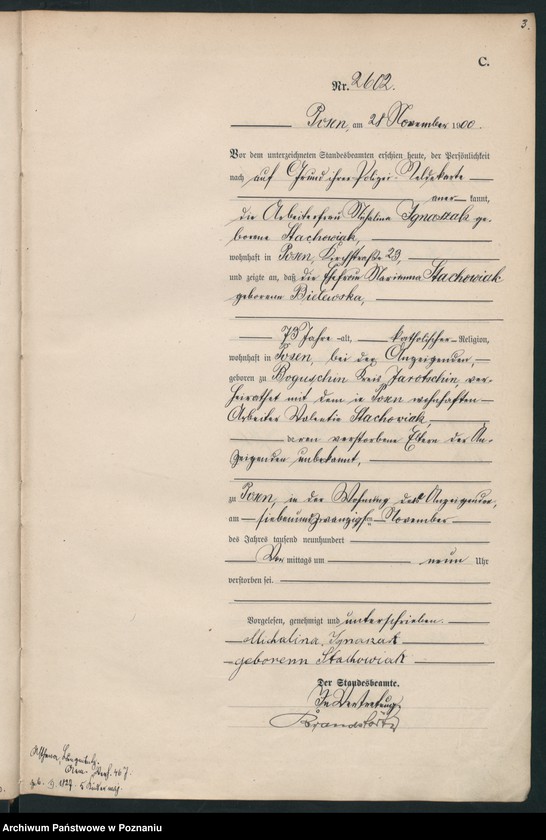 3.
C.
Nr. 2602.
Posen, am 28 November 1900.
Vor dem unterzeichneten Standesbeamten erschien heute, der Persönlichkeit
nach auf Grund ihrer Polizei-Meldekarte
aner kannt,
die Arbeiterfrau Michalina Ignaszak ge-
borene Stachowiak,
wohnhaft in Posen, Kirchstraße 29,
und zeigte an, daß die Ehefrau Marianna Stachowiak
geborene Bielewska,
73 Jahre alt, katholischer Religion,
wohnhaft in Posen, bei der Anzeigenden,
geboren zu Boguschin Kreis Jarotschin, ver-
heirathet mit dem in Posen wohnhaften
Arbeiter Valentin Stachowiak,
deren verstorbene Eltern der An-
zeigenden unbekannt,
zu Posen, in der Wohnung der Anzeigenden,
am siebenundzwanzigsten November
des Jahres tausend neunhundert
Vor mittags um neun Uhr
verstorben sei.
Vorgelesen, genehmigt und unterschrieben.
Michalina Ignaszak
geborenn Stachowiak
Der Standesbeamte.
In Vertretung,
Asthma,
geb. 9. 1827. 5 Kinder
Archiwum Państwowe w Poznaniu